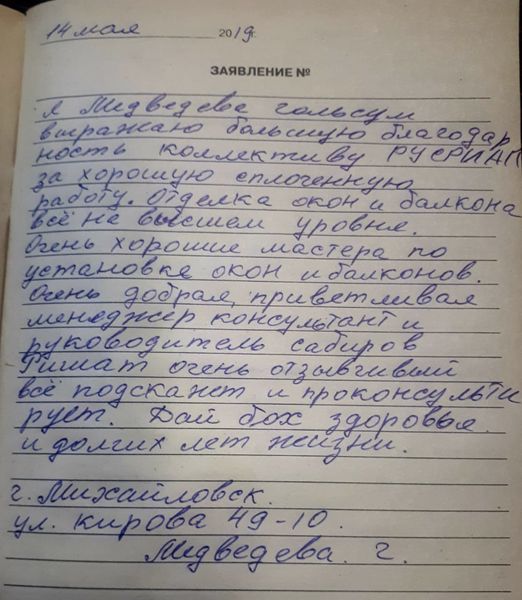 14 мая 2019г.
ЗАЯВЛЕНИЕ №
Я Медведева гольсум
выражаю большую благодар
ность коллективу РУСРИАЛ
за хорошую сплоченную
работу. Отделка окон и балкона
всё не высшем уровне.
Очень хорошие мастера по
установке окон и балконов.
Очень добрая, приветливая
менеджер консультант и
руководитель сабиров
Ришат очень отзывчивый
всё подскажет и проконсульти
рует. Дай бох здоровья
и долгих лет жизни.
г. Михайловск.
ул. кирова 49-10.
Медведева. г.